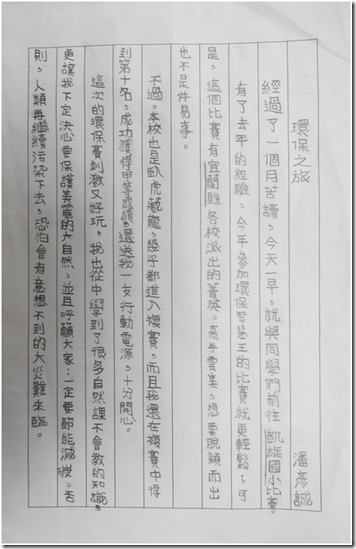 環保之旅 潘彥誠
經過了一個月苦讀，今天一早，就與同學們前往凱旋國小比賽。
有了去年的經驗，今年參加環保智慧王的比賽就更輕鬆，可
是，這個比賽有宜蘭縣各校派出的菁英，高手雲集，想要脫穎而出
也不是件易事。
不過，本校也是臥虎藏龍，幾乎都進入複賽，而且我還在複賽中得
到第十名，成功獲得甲等成績，還送我一支行動電源，十分開心。
這次的環保賽刺激又好玩，我也從中學到了很多自然課不會教的知識，
更讓我下定決心要保護美麗的大自然，並且呼籲大家：一定要節能減碳，否
則，人類再繼續污染下去，恐怕會有意想不到的大災難來臨。